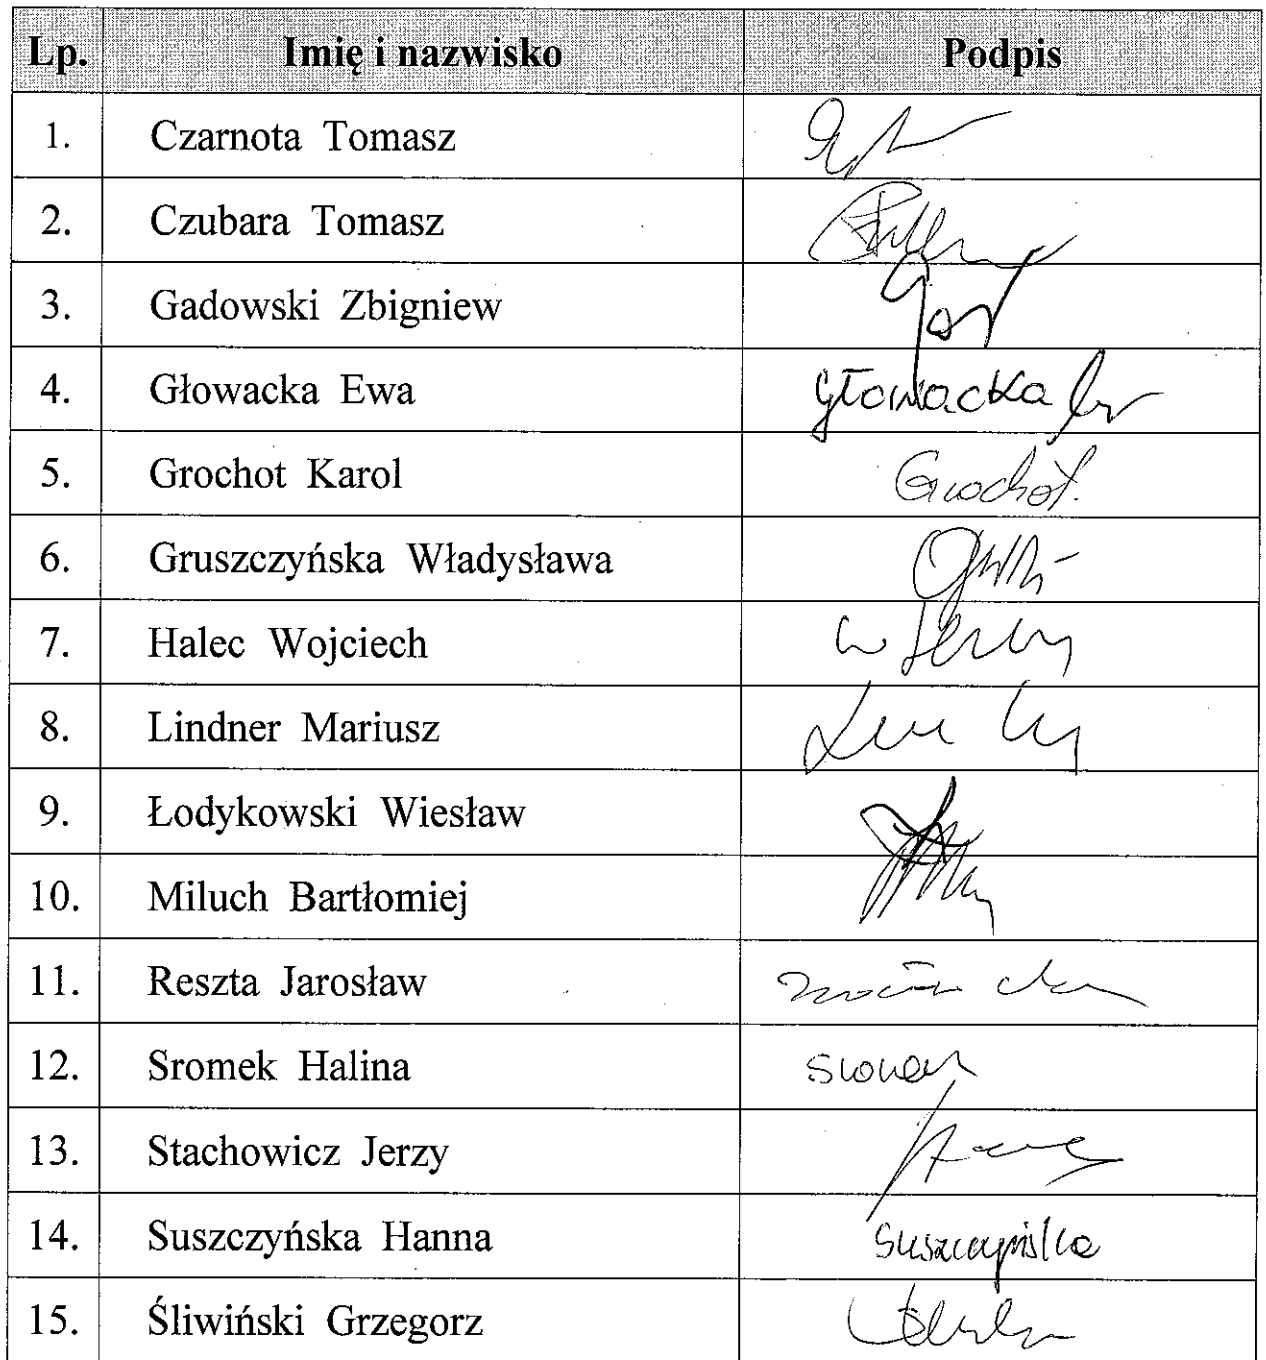 Lp. Imię i nazwisko Podpis
1. Czarnota Tomasz
2. Czubara Tomasz
3. Gadowski Zbigniew
4. Głowacka Ewa Głowacka
5. Grochot Karol Grochot.
6. Gruszczyńska Władysława
7. Halec Wojciech
8. Lindner Mariusz
9. Łodykowski Wiesław
10. Miluch Bartłomiej
11. Reszta Jarosław
12. Sromek Halina
13. Stachowicz Jerzy
14. Suszczyńska Hanna Suszczyńska
15. Śliwiński Grzegorz